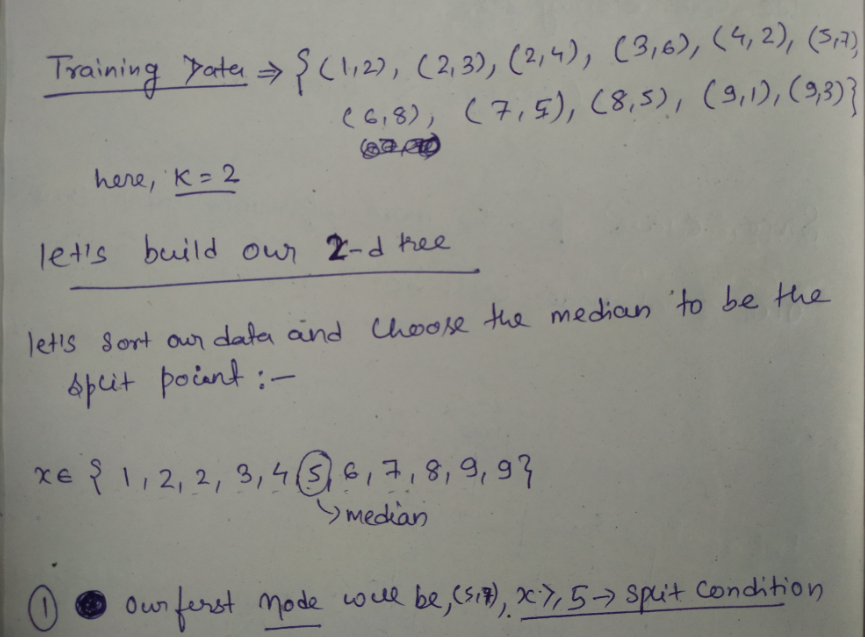 Training Data ⇒ {(1,2), (2,3), (2,4), (3,6), (4,2), (5,7),
(6,8), (7,5), (8,5), (9,1), (9,3)}
here, K = 2
let's build our 2-d tree
let's sort our data and choose the median to be the
split point :-
x ∈ {1, 2, 2, 3, 4, 5, 6, 7, 8, 9, 9}
↳ median
① our first node will be, (5,7), x ≥ 5 → split condition